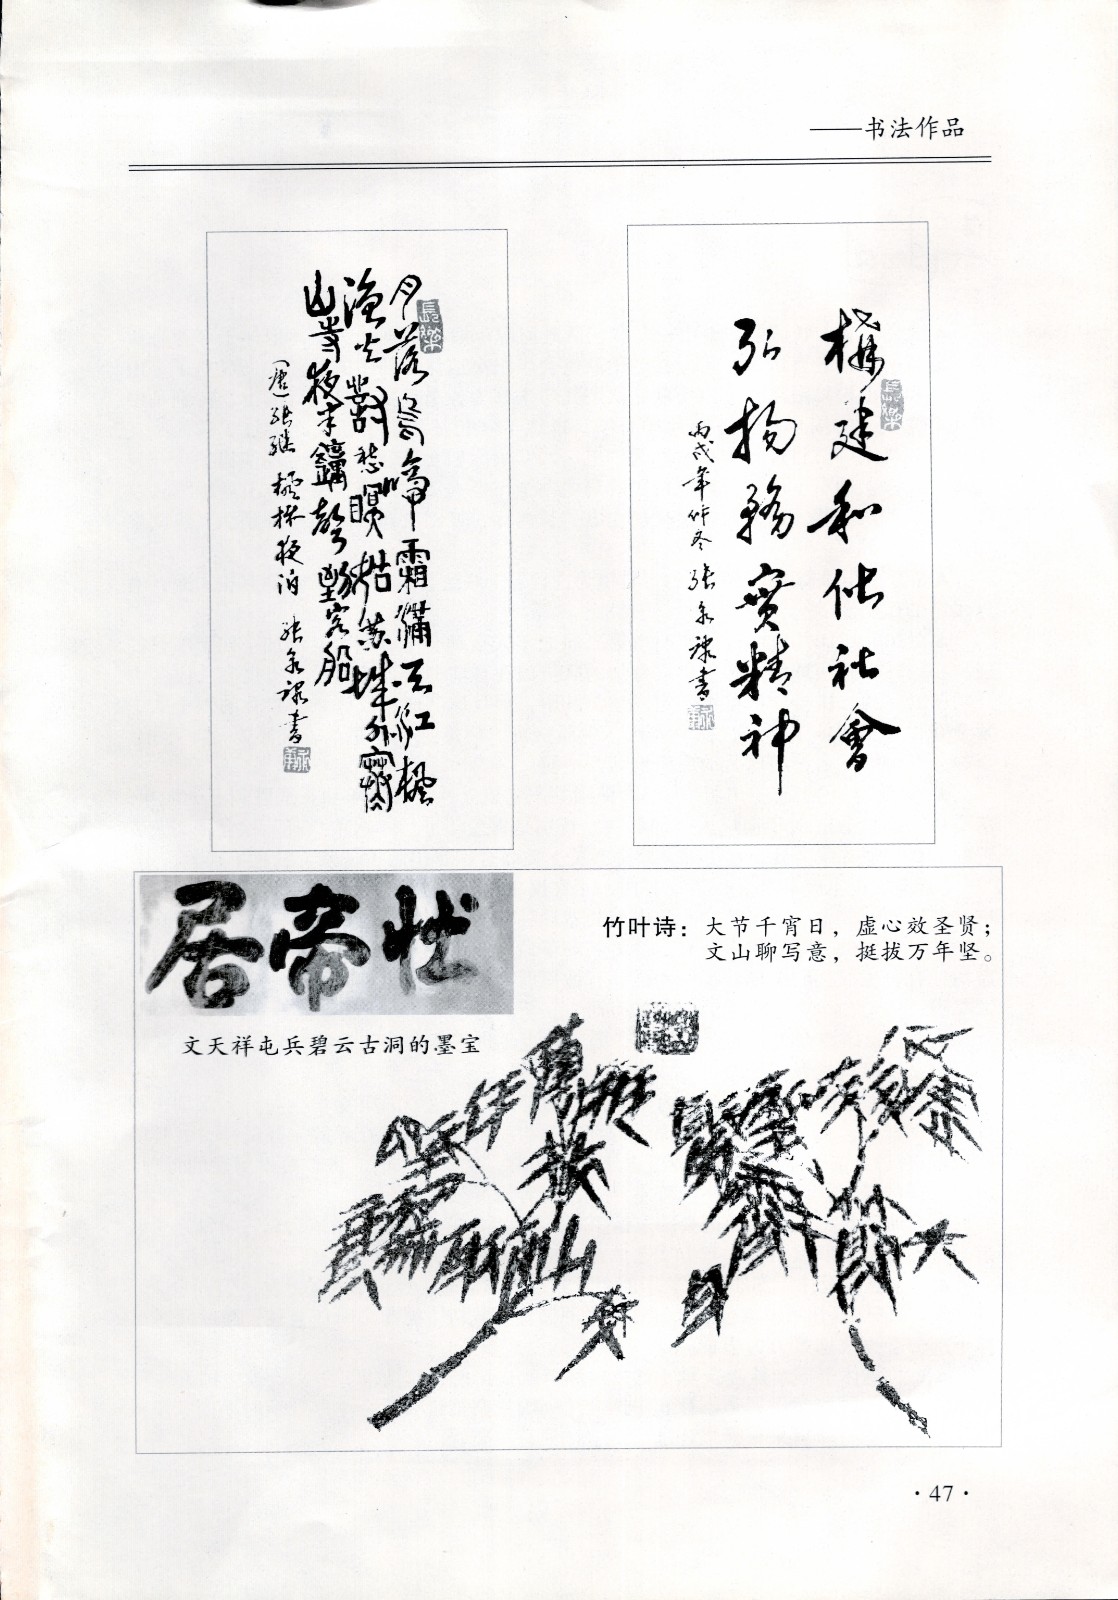 ——书法作品
構建和谐社會
弘揚務實精神
丙戌年仲冬 张永禄書
長樂
月落烏啼霜滿天江楓
漁火對愁眠姑蘇城外寒
山寺夜半鐘聲到客船
(唐)张继 楓桥夜泊 张永禄書
長樂
壮帝居
文天祥屯兵碧云古洞的墨宝
竹叶诗：大节千宵日，虚心效圣贤；
文山聊写意，挺拔万年坚。
·47·